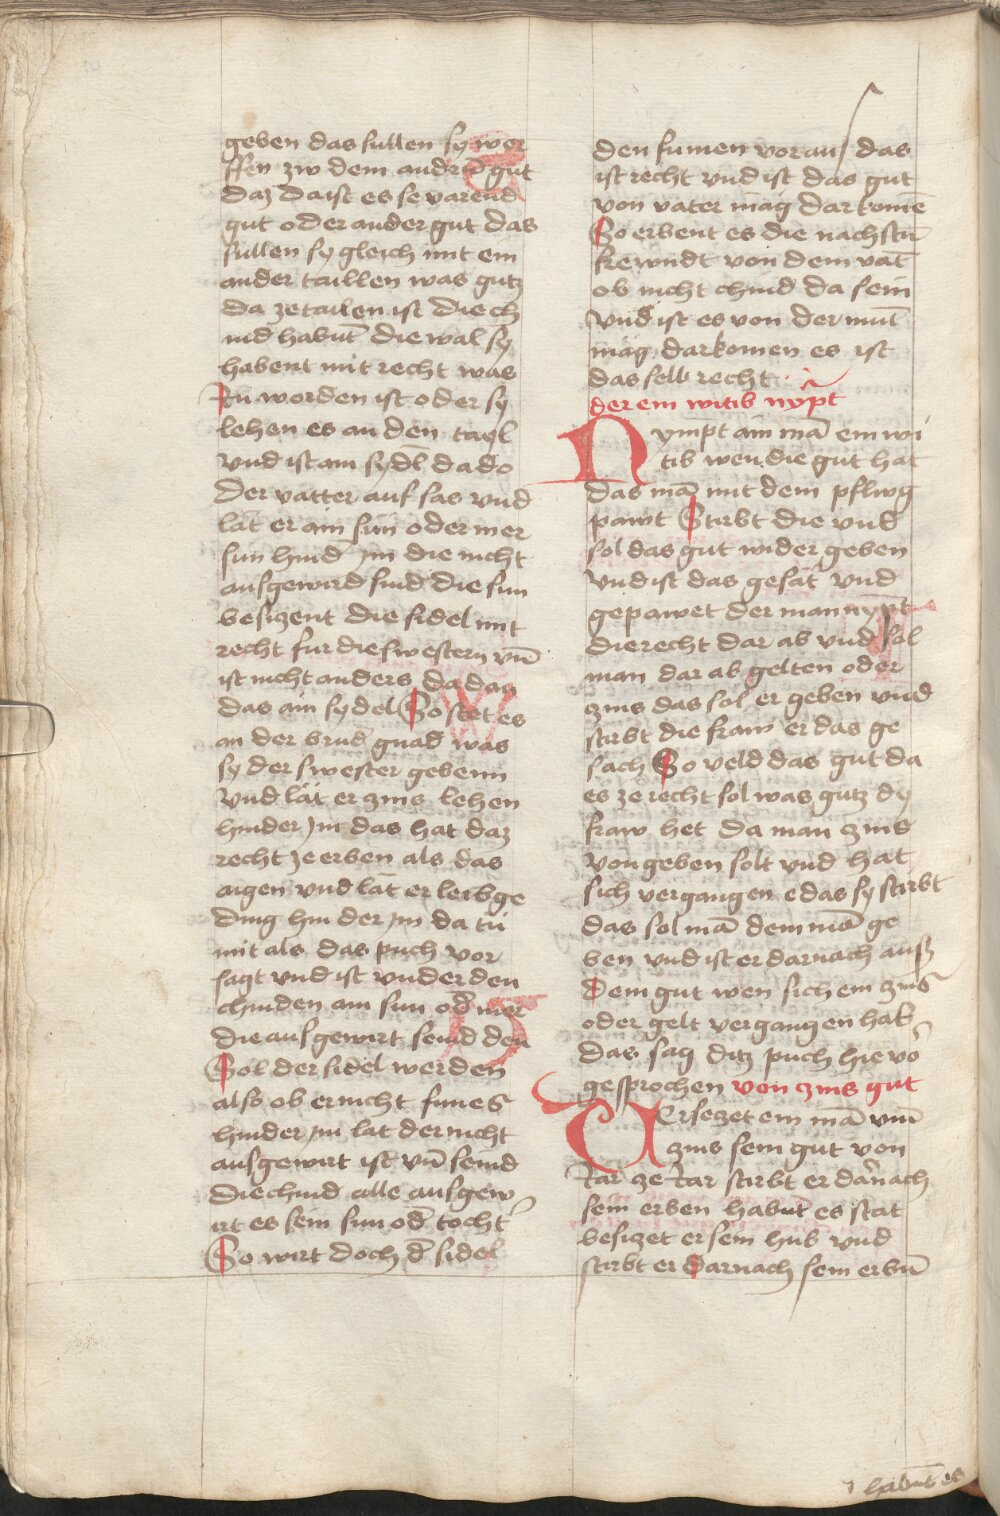 geben das sullen sy wer
ffen zw dem andrē gut
daz da ist es se varend
gut oder ander gut das
sullen sy gleich mit ein
ander taillen was gutz
da ze tailen ist die ch
ind habnt̄ die wal sy
habent mit recht was
in worden ist oder sy
lehen es an den tayl
vnd ist ain sydl da do
der vatter auf sas vnd
lāt er ain sun oder mer
sun hind̄ im die nicht
ausgewird sind die sun
besizent die sidel mit
recht fur die swestern vn̄
ist nicht anders da dan
das ain sydel So stet es
an der brud̄ gnad was
sy der swester gebenn
Vnd lāt er zins lehen
hinder im das hat daz
recht ze erben als das
aigen vnd lāt er leibge
ding hin der im da tu
mit als das puch vor
sagt vnd ist vnder den
chinden ain sun od̄ mer
die ausgewirt seind den
Sol der sidel werden
also ob er nicht sunes
hinder im lat der nicht
ausgewirt ist vn̄ seind
die chind alle ausgew
irt es sein sun od̄ tocht̄
So wirt doch d̄ sidel
den sunen voraus das
ist recht vnd ist das gut
von vater mag dar komē
So erbent es die nachstn̄
frewndt von dem vat̄
ob nicht chind da sein
Vnd ist es von der mut̄
mag dar komen es ist
das selb recht
der ein witib nympt
Nympt ain mā ein wi
tib wen die gut hat
das mā mit dem pflwg
pawt Stirbt die vnd
sol das gut wider geben
Vnd ist das gesāt vnd
gepawet der man nympt
die recht dar ab vnd sol
man dar ab gelten oder
zins das sol er geben vnd
stirbt die fraw er das ge
sach So veld das gut da
es ze recht sol was gutz dy
fraw het da man zins
von geben solt vnd hat
sich vergangen e das sy stirbt
das sol mā dem mā ge
ben vnd ist er darnach auß
dem gut wen sich ein zins
oder gelt vergangen hab
das sag ditz puch hie vō
gesprochen von zins gut
Versezet ein mā vm̄
zins sein gut von
Iar ze Iar stirbt er darnach
sein erben habnt̄ es stat
besizet er sein hub vnd
stirbt er darnach sein erbn̄
habnt̄ es